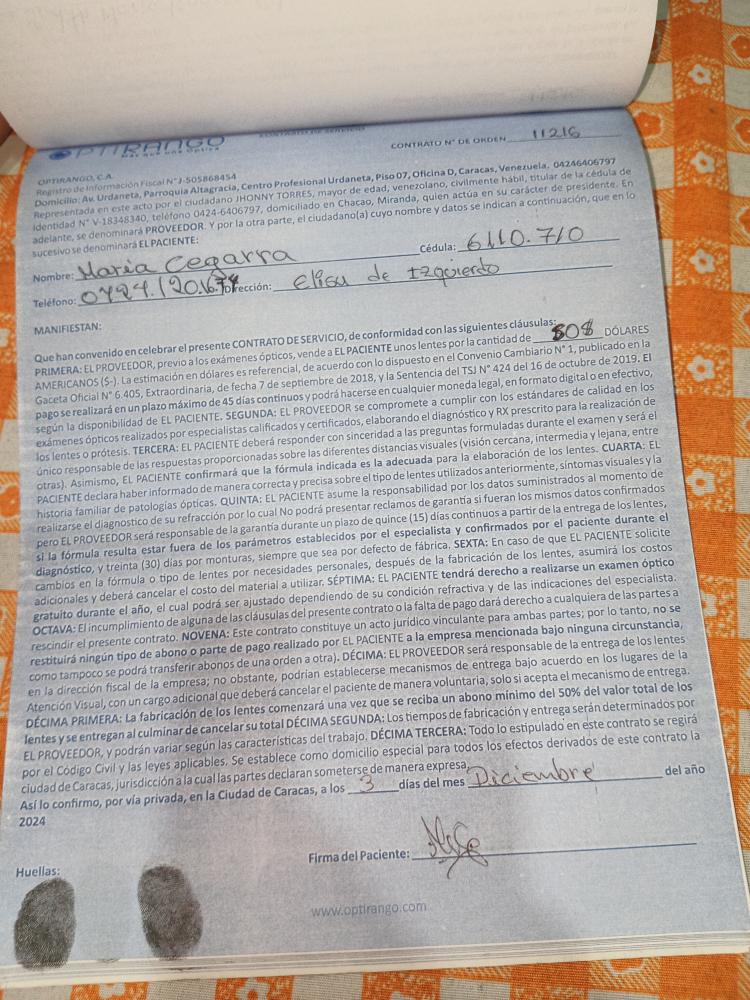 OPTIRANGO
Más que una Óptica
CONTRATO DE SERVICIO
CONTRATO N° DE ORDEN 11216
OPTIRANGO, C.A.
Registro de Información Fiscal N° J-505868454
Domicilio: Av. Urdaneta, Parroquia Altagracia, Centro Profesional Urdaneta, Piso 07, Oficina D, Caracas, Venezuela, 04246406797
Representada en este acto por el ciudadano JHONNY TORRES, mayor de edad, venezolano, civilmente hábil, titular de la cédula de
Identidad N° V-18348340, teléfono 0424-6406797, domiciliado en Chacao, Miranda, quien actúa en su carácter de presidente. En
adelante, se denominará PROVEEDOR. Y por la otra parte, el ciudadano(a) cuyo nombre y datos se indican a continuación, que en lo
sucesivo se denominará EL PACIENTE:
Nombre: Maria Cegarra Cédula: 6110.710
Teléfono: Dirección: de Izquierdo
MANIFIESTAN:
Que han convenido en celebrar el presente CONTRATO DE SERVICIO, de conformidad con las siguientes cláusulas:
PRIMERA: EL PROVEEDOR, previo a los exámenes ópticos, vende a EL PACIENTE unos lentes por la cantidad de 808 DÓLARES
AMERICANOS ($-). La estimación en dólares es referencial, de acuerdo con lo dispuesto en el Convenio Cambiario N° 1, publicado en la
Gaceta Oficial N° 6.405, Extraordinaria, de fecha 7 de septiembre de 2018, y la Sentencia del TSJ N° 424 del 16 de octubre de 2019. El
pago se realizará en un plazo máximo de 45 días continuos y podrá hacerse en cualquier moneda legal, en formato digital o en efectivo,
según la disponibilidad de EL PACIENTE. SEGUNDA: EL PROVEEDOR se compromete a cumplir con los estándares de calidad en los
exámenes ópticos realizados por especialistas calificados y certificados, elaborando el diagnóstico y RX prescrito para la realización de
los lentes o prótesis. TERCERA: EL PACIENTE deberá responder con sinceridad a las preguntas formuladas durante el examen y será el
único responsable de las respuestas proporcionadas sobre las diferentes distancias visuales (visión cercana, intermedia y lejana, entre
otras). Asimismo, EL PACIENTE confirmará que la fórmula indicada es la adecuada para la elaboración de los lentes. CUARTA: EL
PACIENTE declara haber informado de manera correcta y precisa sobre el tipo de lentes utilizados anteriormente, síntomas visuales y la
historia familiar de patologías ópticas. QUINTA: EL PACIENTE asume la responsabilidad por los datos suministrados al momento de
realizarse el diagnostico de su refracción por lo cual No podrá presentar reclamos de garantía si fueran los mismos datos confirmados
pero EL PROVEEDOR será responsable de la garantía durante un plazo de quince (15) días continuos a partir de la entrega de los lentes,
si la fórmula resulta estar fuera de los parámetros establecidos por el especialista y confirmados por el paciente durante el
diagnóstico, y treinta (30) días por monturas, siempre que sea por defecto de fábrica. SEXTA: En caso de que EL PACIENTE solicite
cambios en la fórmula o tipo de lentes por necesidades personales, después de la fabricación de los lentes, asumirá los costos
adicionales y deberá cancelar el costo del material a utilizar. SÉPTIMA: EL PACIENTE tendrá derecho a realizarse un examen óptico
gratuito durante el año, el cual podrá ser ajustado dependiendo de su condición refractiva y de las indicaciones del especialista.
OCTAVA: El incumplimiento de alguna de las cláusulas del presente contrato o la falta de pago dará derecho a cualquiera de las partes a
rescindir el presente contrato. NOVENA: Este contrato constituye un acto jurídico vinculante para ambas partes; por lo tanto, no se
restituirá ningún tipo de abono o parte de pago realizado por EL PACIENTE a la empresa mencionada bajo ninguna circunstancia,
como tampoco se podrá transferir abonos de una orden a otra). DÉCIMA: EL PROVEEDOR será responsable de la entrega de los lentes
en la dirección fiscal de la empresa; no obstante, podrían establecerse mecanismos de entrega bajo acuerdo en los lugares de la
Atención Visual, con un cargo adicional que deberá cancelar el paciente de manera voluntaria, solo si acepta el mecanismo de entrega.
DÉCIMA PRIMERA: La fabricación de los lentes comenzará una vez que se reciba un abono mínimo del 50% del valor total de los
lentes y se entregan al culminar de cancelar su total DÉCIMA SEGUNDA: Los tiempos de fabricación y entrega serán determinados por
EL PROVEEDOR, y podrán variar según las características del trabajo. DÉCIMA TERCERA: Todo lo estipulado en este contrato se regirá
por el Código Civil y las leyes aplicables. Se establece como domicilio especial para todos los efectos derivados de este contrato la
ciudad de Caracas, jurisdicción a la cual las partes declaran someterse de manera expresa,
Así lo confirmo, por vía privada, en la Ciudad de Caracas, a los 3 días del mes Diciembre del año
2024
Firma del Paciente:
Huellas:
www.optirango.com